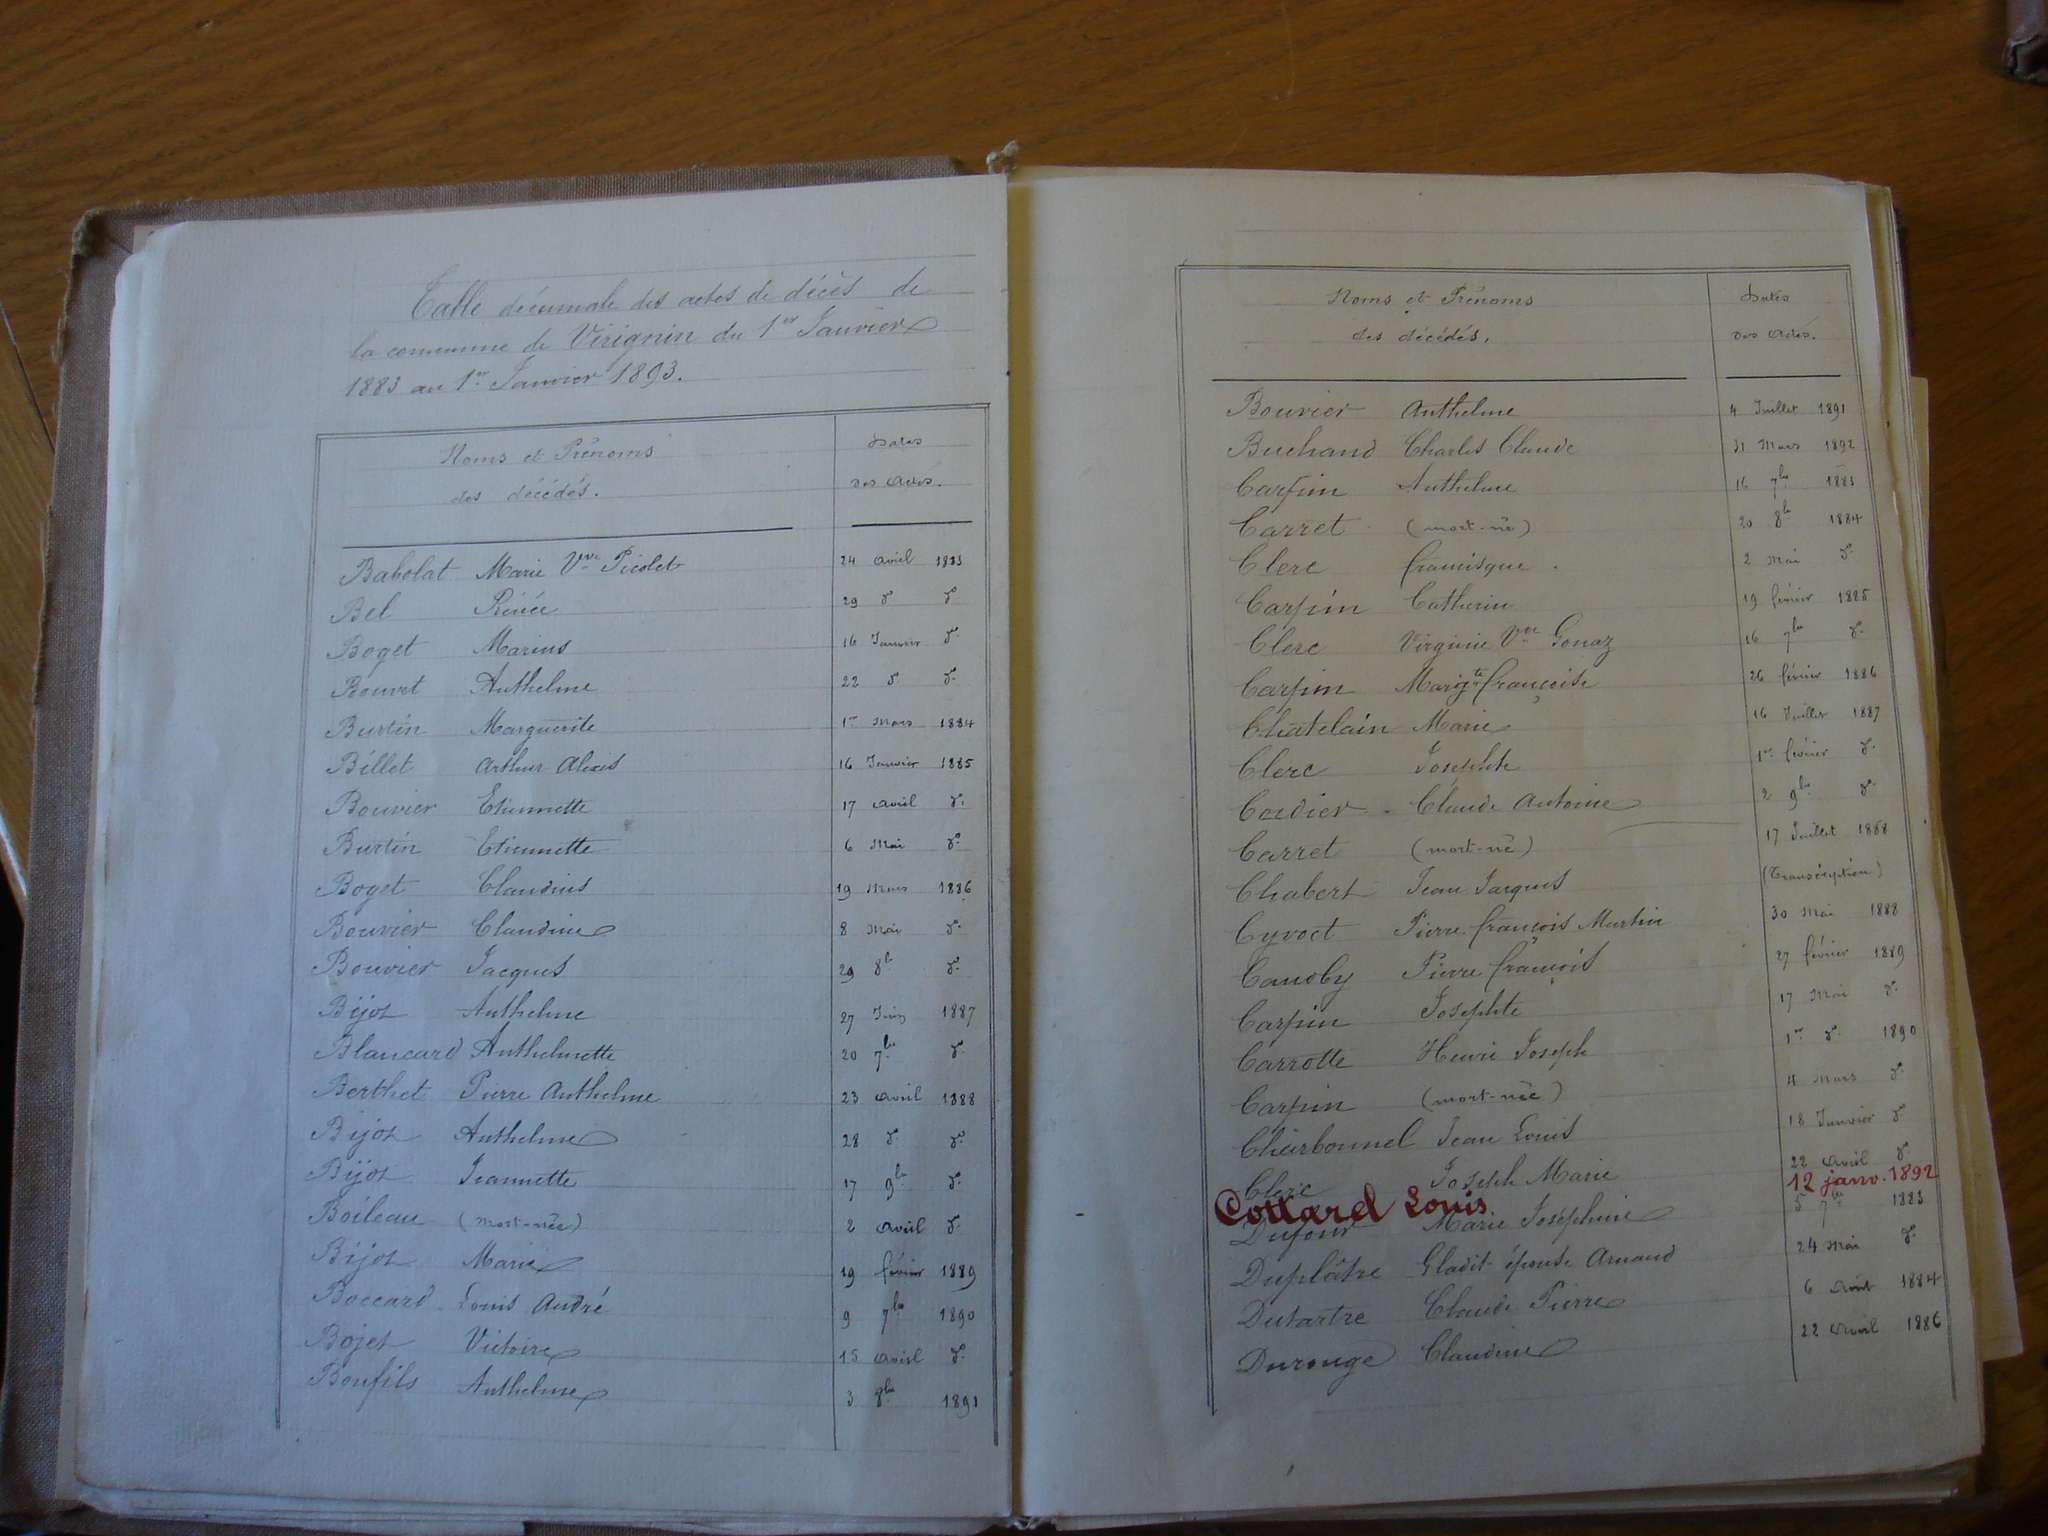 Table décennale des actes de décès de
la commune de Virignin du 1er Janvier
1883 au 1er Janvier 1893.
Noms et Prénoms Dates
des décédés. des Actes.
Babolat Marie Vve Picolet 24 avril 1883
Bel 29 d° d°
Boget Marius 16 Janvier d°
Bouvet Anthelme 22 d° d°
Burtin Marguerite 1er Mars 1884
Billet Arthur Alexis 16 Janvier 1885
Bouvier Etiennette 17 avril d°
Burtin Etiennette 6 Mai d°
Boget Claudius 19 Mars 1886
Bouvier Claudine 8 Mai d°
Bouvier Jacques 29 8b d°
Bijot Anthelme 27 Juin 1887
Blancard Anthelmette 20 7bre d°
Berthet Pierre Anthelme 23 avril 1888
Bijot Anthelme 28 d° d°
Bijot Jeannette 17 9b d°
Boileau (mort-née) 2 avril d°
Bijot Marie 19 février 1889
Boccard Louis André 9 7bre 1890
Bojet Victoire 15 avril d°
Bonfils Anthelme 3 8bre 1891
Noms et Prénoms Dates
des décédés. des Actes.
Bouvier Anthelme 4 Juillet 1891
Buchand Charles Claude 31 Mars 1892
Carpin Anthelme 16 7bre 1883
Carret (mort-né) 20 8b 1884
Clerc francisque. 2 Mai d°
Carpin Catherin 19 février 1885
Clerc Virginie Vve Gonaz 16 7bre d°
Carpin Margte françoise 26 février 1886
Chatelain Marie 16 Juillet 1887
Clerc Josephte 1er février d°
Cordier Claude Antoine 2 9bre d°
Carret (mort-né) 17 Juillet 1888
Chabert Jean Jacques (Transcription)
Cyvoct Pierre françois Martin 30 Mai 1888
Canoby Pierre françois 27 février 1889
Carpin Josephte 17 Mai d°
Carrotte Henri Joseph 1er d° 1890
Carpin (mort-née) 4 Mars d°
Charbonnel Jean Louis 18 Janvier d°
Clerc Joseph Marie 22 avril d°
Collard Louis 12 janv. 1892
Dufour Marie Joséphine 5 7bre 1883
Duplâtre épouse Arnaud 24 Mai d°
Dutartre Claude Pierre 6 Août 1884
Durouge Claudine 22 Avril 1886